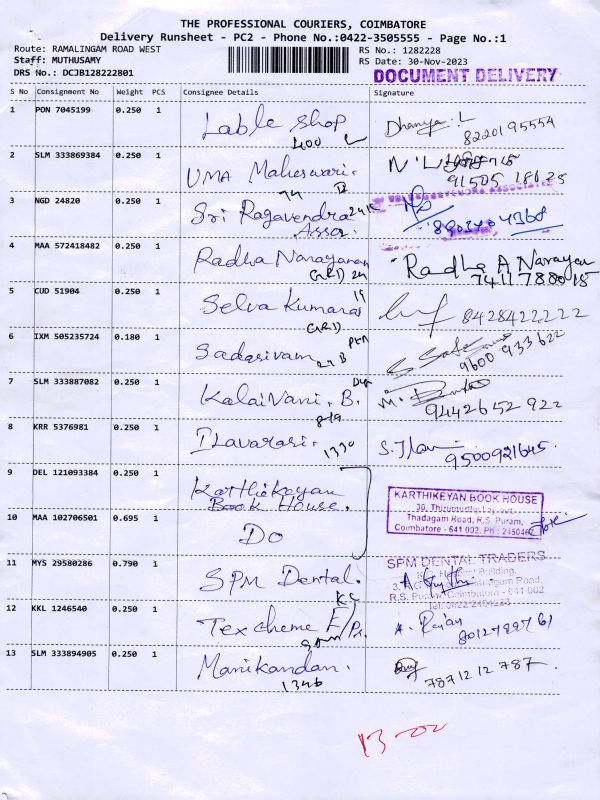 THE PROFESSIONAL COURIERS, COIMBATORE
Delivery Runsheet - PC2 - Phone No.:0422-3505555 - Page No.:1
Route: RAMALINGAM ROAD WEST
RS No.: 1282228
Staff: MUTHUSAMY
RS Date: 30-Nov-2023
DRS No.: DCJB128222801
DOCUMENT DELIVERY
S No Consignment No Weight PCS Consignee Details Signature
1 PON 7045199 0.250 1 Lable Shop Dhanya. L
400 8220195554
2 SLM 333869384 0.250 1 UMA Maheswari.
91505 18625
3 NGD 24820 0.250 1 Sri Ragavendra
Assoc.
4 MAA 572418482 0.250 1 Radha Narayanan Radha A Narayan
7411788015
5 CUD 51904 0.250 1 Selva Kumaras 8428422222
6 IXM 505235724 0.180 1 Sadasivam
9600 933622
7 SLM 333887082 0.250 1 Kalaivani. B.
9442652922
8 KRR 5376981 0.250 1 Ilavarasi. S. Ilav
1330 9500921645
9 DEL 121093384 0.250 1 Karthikeyan
Book House.
KARTHIKEYAN BOOK HOUSE
Thadagam Road, R.S. Puram,
Coimbatore - 641 002.
10 MAA 102706501 0.695 1 Do
11 MYS 29580286 0.790 1 SPM Dental.
SPM DENTAL TRADERS
12 KKL 1246540 0.250 1 Tex cheme A. Rajan
13 SLM 333894905 0.250 1 Manikandan.
1346 7871212787
13-00